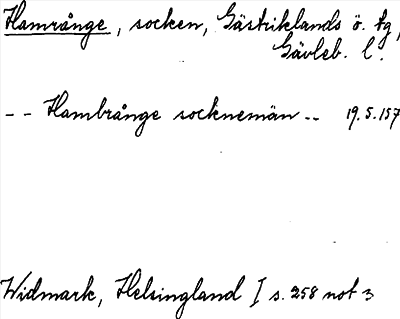 Hamrånge, socken, Gästriklands ö. tg,
Gävleb. l.
-- Hambrånge socknemän -- 19.5.157
Widmark, Helsingland I s. 258 not 3